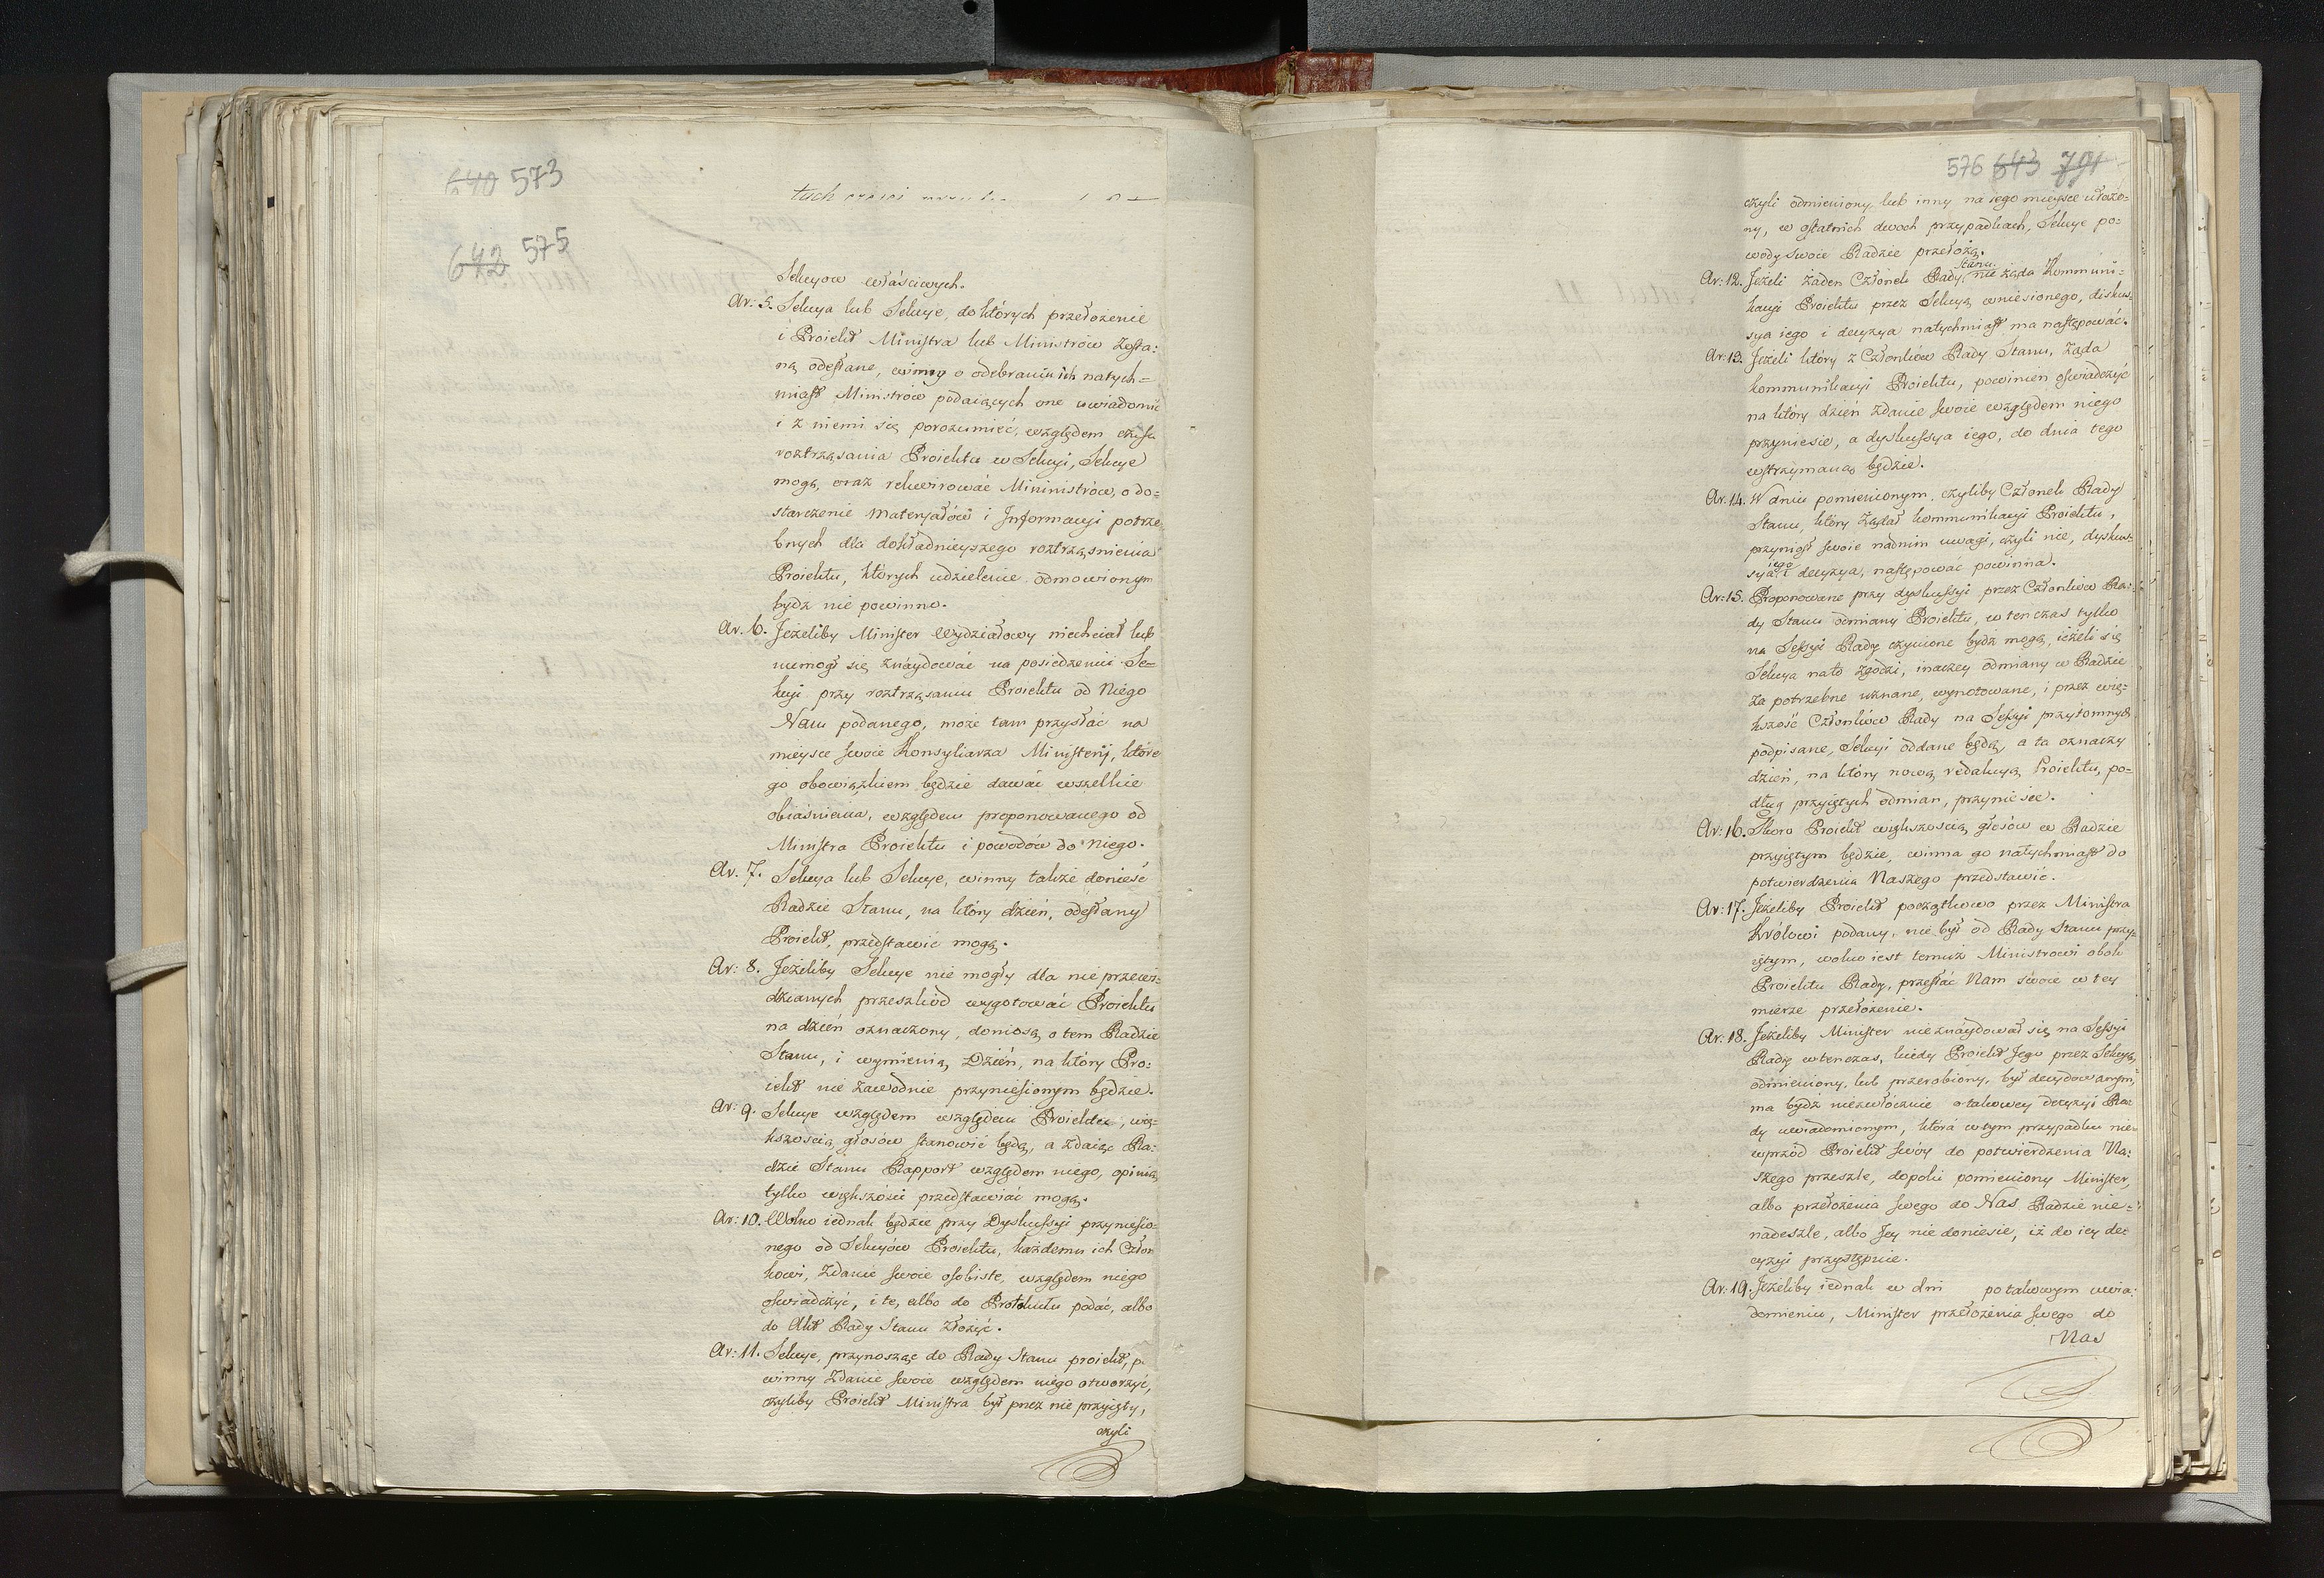 640 573
642 575
tuch części
Sekcyow właściwych.
Ar: 5. Sekcya lub Sekcye, do których przełożenie
i Proiekt Ministra lub Ministrów zosta:
ną odesłane, winny o odebraniu ich natych=
miast Ministrów podaiących one uwiadomić
i z niemi się porozumieć, względem czasu
roztrząsania Proiektu w Sekcyi, Sekcye
mogą, oraz rekwirować Mininistrów, o do=
starczenie Materyałów i Informacyi potrze
bnych dla dokładnieyszego roztrząsnienia
Proiektu, których udzielenie odmowionym
bydz nie powinno.
Ar. 6. Jeżeliby Minister Wydziałowy niechciał lub
niemogł się znaydować na posiedzenii Se=
kcyi przy roztrząsaniu Proiektu od Niego
Nam podanego, może tam przysłać na
mieysce swoie Konsyliarza Ministerij, które
go obowiązkiem będzie dawać wszelkie
obiaśnienia, względem proponowanego od
Ministra Proiektu i powodów do niego.
Ar. 7. Sekcya lub Sekcye, winny także donieść
Radzie Stanu, na który dzień, odesłany
Proiekt, przedstawić mogą.
Ar: 8. Jeżeliby Sekcye nie mogły dla nie przewi:
dzianych przeszkód wygotować Proiektu
na dzień oznaczony, doniosą o tem Radzie
Stanu, i wymienią Dzień, na który Pro:
iekt nie zawodnie przyniesionym będzie.
Ar: 9. Sekcye względem względem Proiektu, wię=
kszością głosów stanowić będą, a zdaiąc Ra:
dzie Stanu Rapport względem niego, opinią
tylko większości przedstawiać mogą.
Ar: 10. Wolno iednak będzie przy Dyskussyi przyniesio=
nego od Sekcyów Proiektu, każdemu ich Człon
kowi, Zdanie swoie osobiste, względem niego
oswiadczyć, i te, albo do Protokułu podać, albo
do Akt Rady Stanu złożyć.
Ar: 11. Sekcye, przynosząc do Rady Stanu proiekt, p.
winny Zdanie swoie względem niego otworzyć,
czyliby Proiekt Ministra był przez nie przyięty,
czyli
576 643 791
czyli odmieniony, lub inny na iego mieysce ułożo=
ny, w ostatnich dwoch przypadkach, Sekcye po=
wody swoie Radzie przełożą.
Ar: 12. Jeżeli żaden Członek Rady Stanu nie żąda Kommuni=
kacyi Proiektu przez Sekcyą wniesionego, diskus=
sya iego i decyzya natychmiast ma następować.
Ar: 13. Jeżeli który z Członków Rady Stanu, żąda
kommunikacyi Proiektu, powinien oświadczyć
na który dzień zdanie swoie względem niego
przyniesie, a dyskussya iego, do dnia tego
wstrzymaną będzie.
Ar. 14. W dniu pomienionym, czyliby Członek Rady
Stanu, który żądał kommunikacyi Proiektu,
przyniosł swoie nadnim uwagi, czyli nie, dyskus=
sya iego i decyzya, następować powinna.
Ar: 15. Proponowane przy dyskussyi przez Członków Ra:
dy Stanu odmiany Proiektu, w ten czas tylko
na Sessyi Rady czynione bydz mogą, ieżeli się
Sekcya nato zgodzi, inaczey odmiany w Radzie
za potrzebne uznane, wynotowane, i przez wię=
kszość Członków Rady na Sessyi przytomnych
podpisane, Sekcyi oddane będą, a ta oznaczy
dzień, na który nową redakcyą Proiektu, po=
dług przyiętych odmian, przyniesie.
Ar: 16. Skoro Proiekt większością głosów w Radzie
przyiętym będzie, winna go natychmiast do
potwierdzenia Naszego przedstawić.
Ar: 17. Jeżeliby Proiekt początkowo przez Ministra
Królowi podany, nie był od Rady Stanu przy=
iętym, wolno iest temuż Ministrowi obok
Proiektu Rady, przesłać Nam swoie w tey
mierze przełożenie.
Ar: 18. Jeżeliby Minister nieznaydował się na Sessyi
Rady wtenczas, kiedy Proiekt Jego przez Sekcyą
odmieniony, lub przerobiony, był decydowanym,
ma bydź niezwłócznie o takowey decyzyi Ra:
dy uwiadomionym, która w tym przypadku nie
wprzód Proiekt swóy do potwierdzenia Na:
szego przeszle, dopoki pomieniony Minister,
albo przełożenia swego do Nas Radzie nie=
nadeszle, albo Jey nie doniesie, iż do iey de=
cyzyi przystępuie.
Ar: 19. Jeżeliby iednak w dni po takowym uwia:
domieniu, Minister przełożenia swego do
Nas